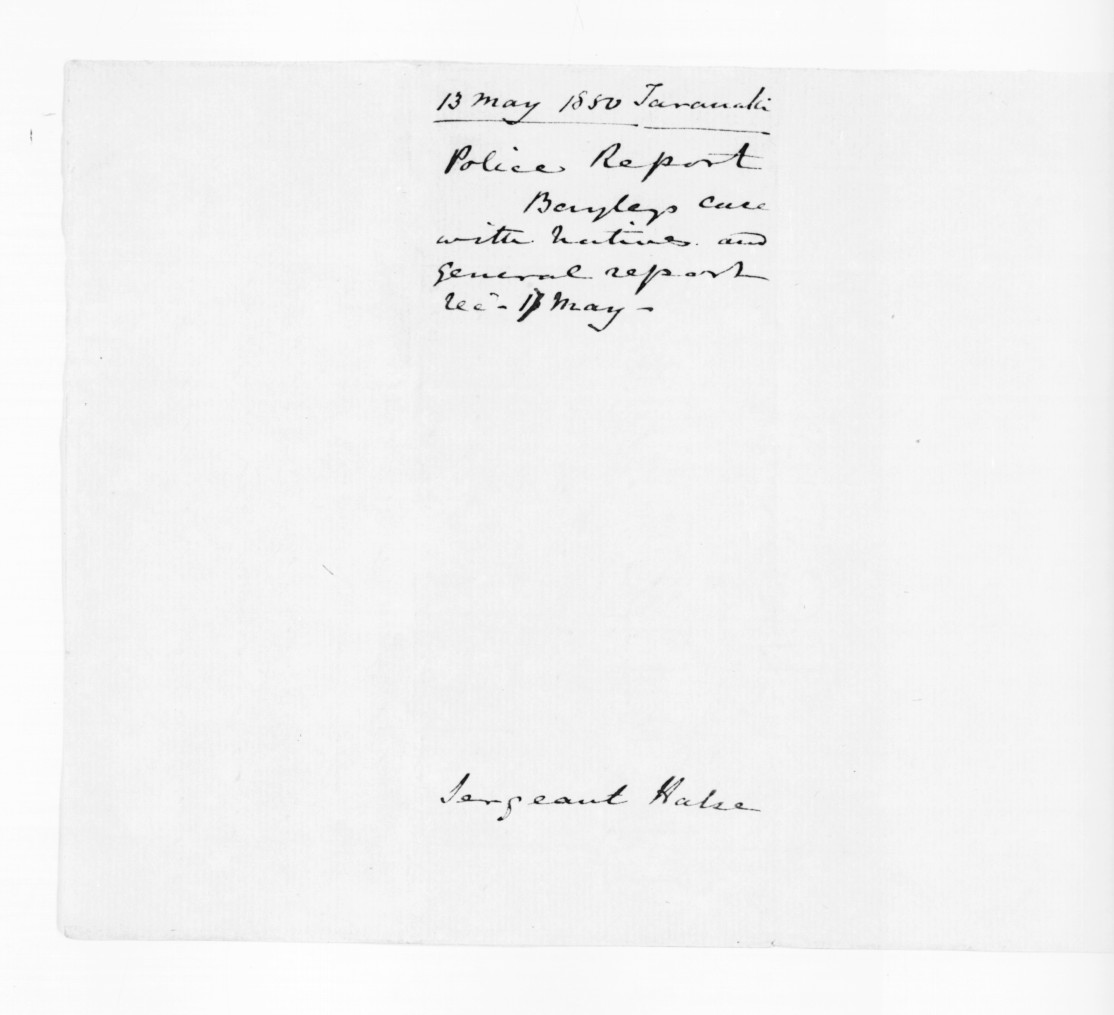 13 May 1850 Taranaki
Police Report
Bayleys case
with natives and
general report
rec - May -
Sergeant Halse